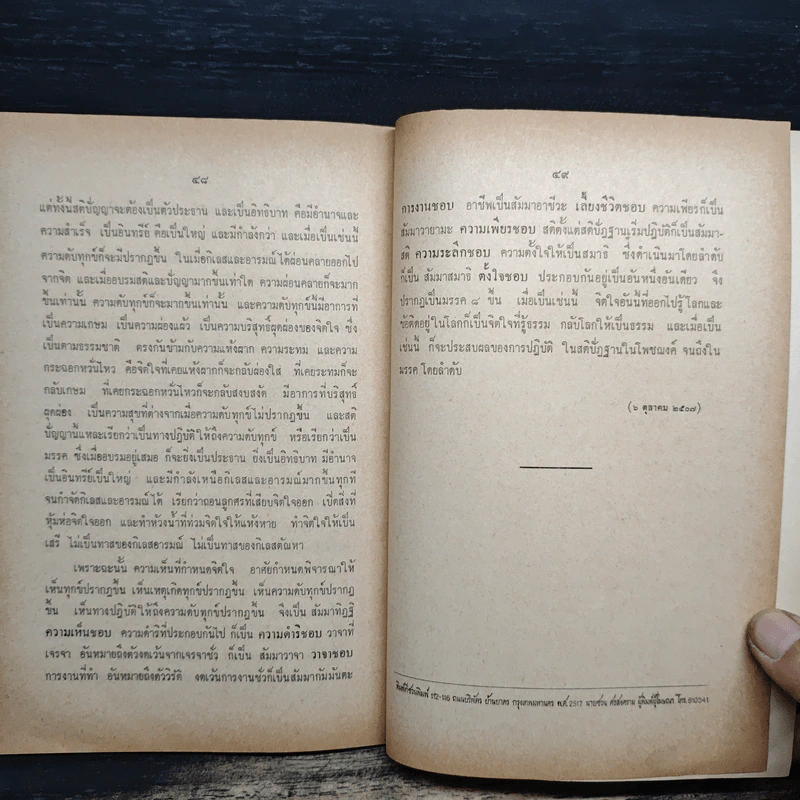 ๔๘
แต่ทั้งนี้สติปัญญาจะต้องเป็นตัวประธาน และเป็นอิทธิบาท คือมีอำนาจและ
ความสำเร็จ เป็นอินทรีย์ คือเป็นใหญ่ และมีกำลังกว่า และเมื่อเป็นเช่นนี้
ความดับทุกข์ก็จะมีปรากฏขึ้น ในเมื่อกิเลสและอารมณ์ได้ผ่อนคลายออกไป
จากจิต และเมื่ออบรมสติและปัญญามากขึ้นเท่าใด ความผ่อนคลายก็จะมาก
ขึ้นเท่านั้น ความดับทุกข์ก็จะมากขึ้นเท่านั้น และความดับทุกข์นี้มีอาการที่
เป็นความเกษม เป็นความผ่องแผ้ว เป็นความบริสุทธิ์ผุดผ่องของจิตใจ ซึ่ง
เป็นตามธรรมชาติ ตรงกันข้ามกับความแห้งผาก ความระทม และความ
กระฉอกหวั่นไหว คือจิตใจที่เคยแห้งผากก็จะกลับผ่องใส ที่เคยระทมก็จะ
กลับเกษม ที่เคยกระฉอกหวั่นไหวก็จะกลับสงบสงัด มีอาการที่บริสุทธิ์
ผุดผ่อง เป็นความสุขที่ต่างจากเมื่อความดับทุกข์ไม่ปรากฏขึ้น และสติ
ปัญญานี้แหละเรียกว่าเป็นทางปฏิบัติให้ถึงความดับทุกข์ หรือเรียกว่าเป็น
มรรค ซึ่งเมื่ออบรมอยู่เสมอ ก็จะยิ่งเป็นประธาน ยิ่งเป็นอิทธิบาท มีอำนาจ
เป็นอินทรีย์เป็นใหญ่ และมีกำลังเหนือกิเลสและอารมณ์มากขึ้นทุกที
จนกำจัดกิเลสและอารมณ์ได้ เรียกว่าถอนลูกศรที่เสียบจิตใจออก เปิดสิ่งที่
หุ้มห่อจิตใจออก และทำห้วงน้ำที่ท่วมจิตใจให้แห้งหาย ทำจิตใจให้เป็น
เสรี ไม่เป็นทาสของกิเลสอารมณ์ ไม่เป็นทาสของกิเลสตัณหา
เพราะฉะนั้น ความเห็นที่กำหนดจิตใจ อาศัยกำหนดพิจารณาให้
เห็นทุกข์ปรากฏขึ้น เห็นเหตุเกิดทุกข์ปรากฏขึ้น เห็นความดับทุกข์ปรากฏ
ขึ้น เห็นทางปฏิบัติให้ถึงความดับทุกข์ปรากฏขึ้น จึงเป็น สัมมาทิฏฐิ
ความเห็นชอบ ความดำริที่ประกอบกันไป ก็เป็น ความดำริชอบ วาจาที่
เจรจา อันหมายถึงตัวงดเว้นจากเจรจาชั่ว ก็เป็น สัมมาวาจา วาจาชอบ
การงานที่ทำ อันหมายถึงตัววิรัติ งดเว้นการงานชั่วก็เป็นสัมมากัมมันตะ
๔๙
การงานชอบ อาชีพเป็นสัมมาอาชีวะ เลี้ยงชีวิตชอบ ความเพียรก็เป็น
สัมมาวายามะ ความเพียรชอบ สติตั้งแต่สติปัฏฐานเริ่มปฏิบัติก็เป็นสัมมา-
สติ ความระลึกชอบ ความตั้งใจให้เป็นสมาธิ ซึ่งดำเนินมาโดยลำดับ
ก็เป็น สัมมาสมาธิ ตั้งใจชอบ ประกอบกันอยู่เป็นอันหนึ่งอันเดียว จึง
ปรากฏเป็นมรรค ๘ ขึ้น เมื่อเป็นเช่นนี้ จิตใจอันนี้ที่ออกไปรู้โลกและ
ข้อติดอยู่ในโลกก็เป็นจิตใจที่รู้ธรรม กลับโลกให้เป็นธรรม และเมื่อเป็น
เช่นนี้ ก็จะประสบผลของการปฏิบัติ ในสติปัฏฐานในโพชฌงค์ จนถึงใน
มรรค โดยลำดับ
(๖ ตุลาคม ๒๕๐๗)
พิมพ์ที่ชวนพิมพ์ ถนนบริพัตร ย้านยาตร กรุงเทพมหานคร พ.ศ. 2517 นายชวน ศรสงคราม ผู้พิมพ์ผู้โฆษณา โทร.